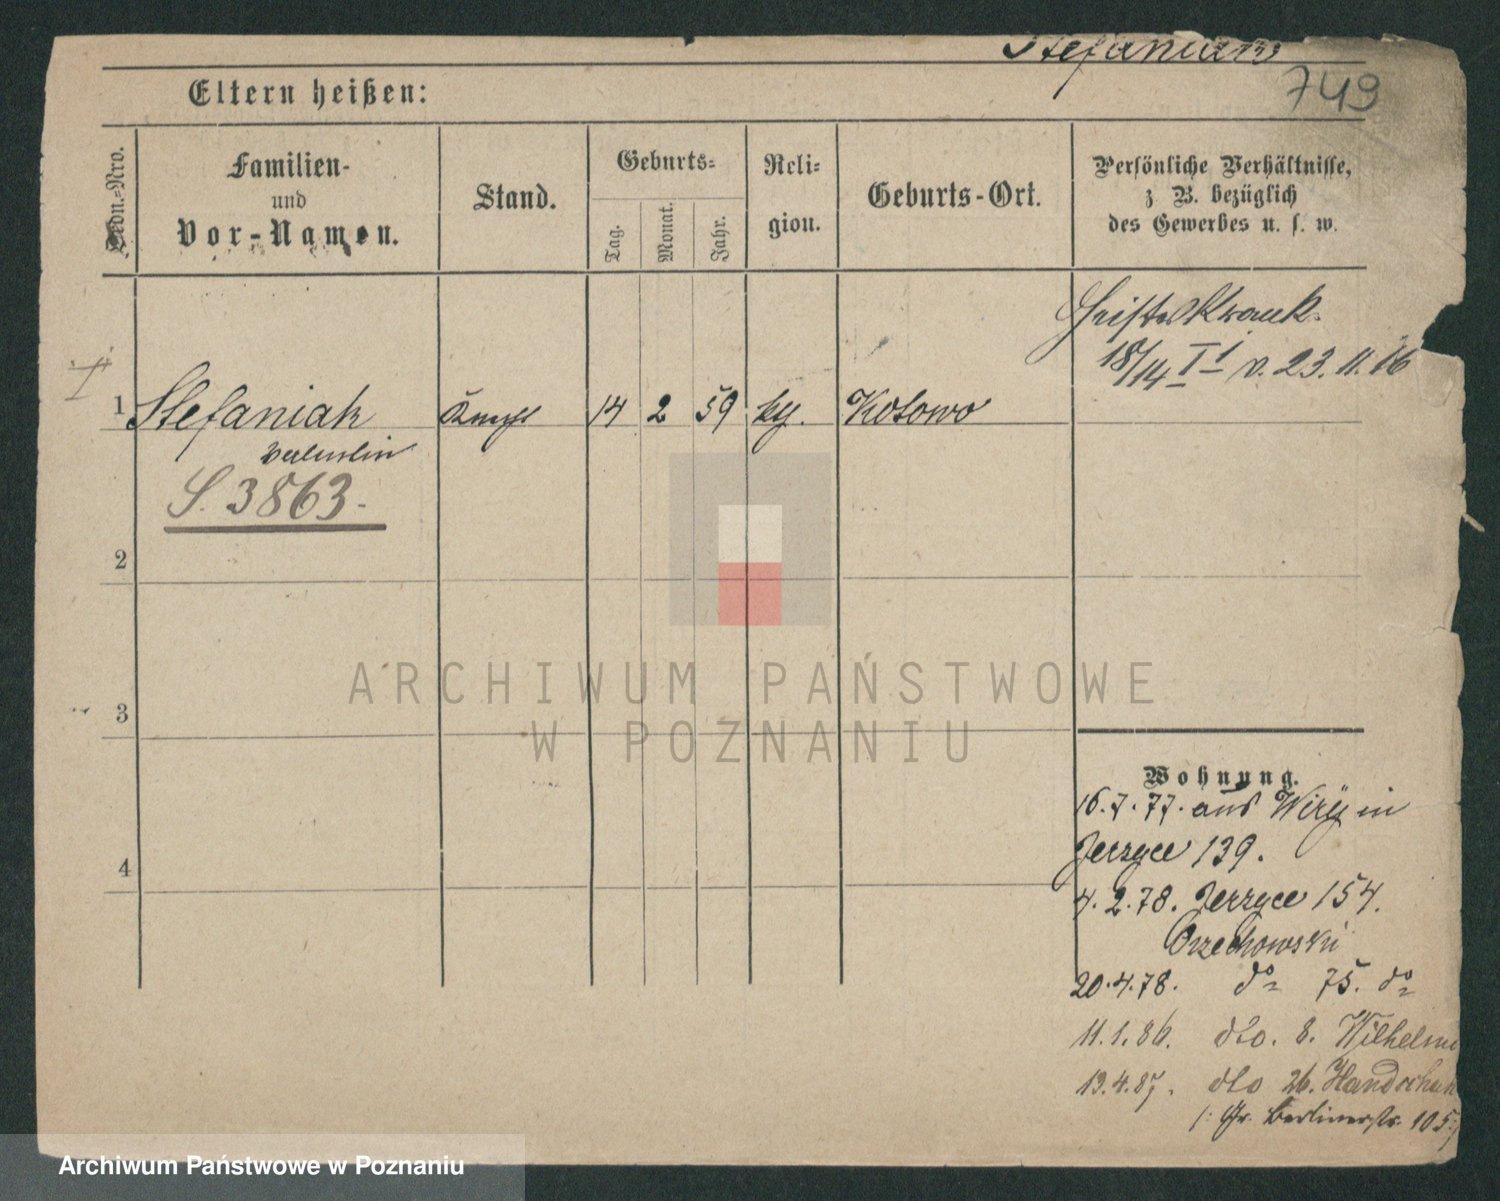 Stefaniak
749
Eltern heißen:
Lfdn.-Nro.
Familien-
und
Vor-Namen.
Stand.
Geburts-
Tag.
Monat.
Jahr.
Reli-
gion.
Geburts-Ort.
Persönliche Verhältnisse,
z B. bezüglich
des Gewerbes u. s. w.
Geisteskrank.
18/14 I 1 v. 23.11.16
1
Stefaniak
14
2
59
kg.
Kotowo
Valentin
S. 3863.-
2
3
4
Wohnung.
16.7.77. aus Wiry in
Jerzyce 139.
4.2.78. Jerzyce 154.
Orzechowski
20.4.78. do 75. do
11.1.86. dto. 8. Wilhelm
13.4.87. dto 26. Handschuh
/: Gr. Berlinerstr. 105
ARCHIWUM PAŃSTWOWE
W POZNANIU
Archiwum Państwowe w Poznaniu